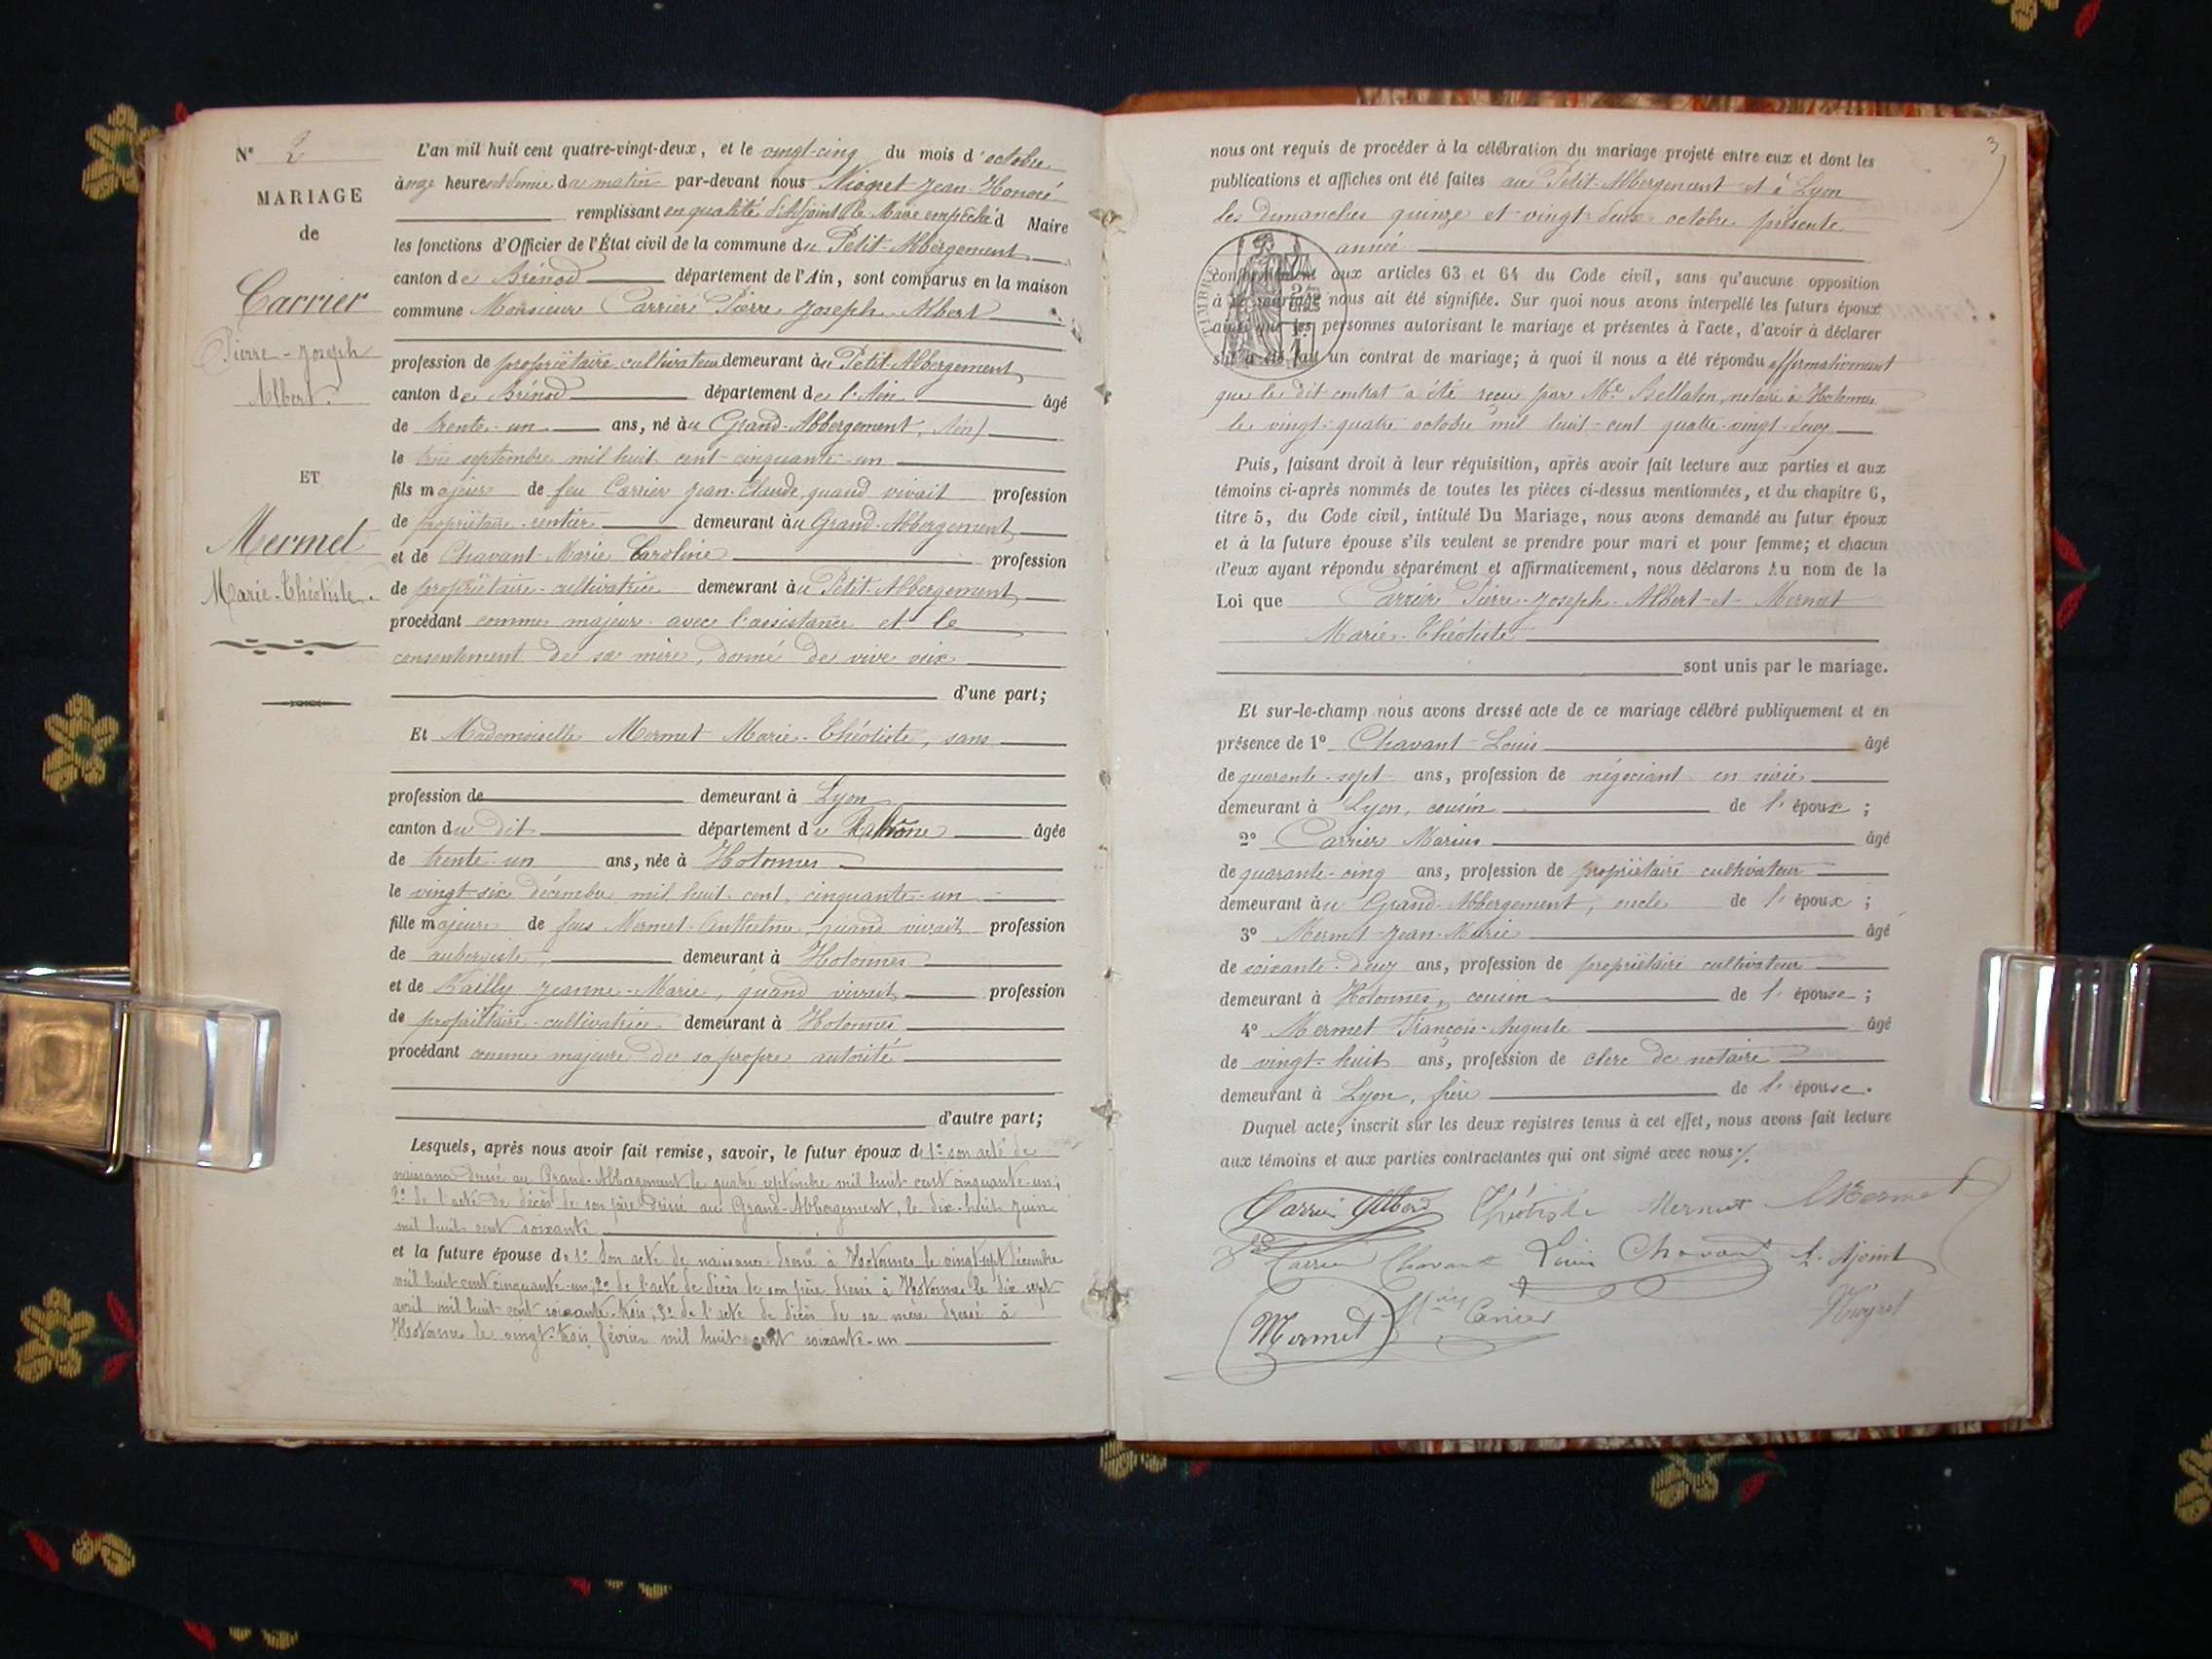 N° 2
MARIAGE
de
Carrier
Pierre-Joseph
Albert.
ET
Mermet
Marie-Théotiste.
L'an mil huit cent quatre-vingt-deux, et le vingt-cinq du mois d'octobre
à onze heures et demie du matin par-devant nous Jean-Honoré
remplissant en qualité d'Adjoint le Maire empêché d Maire
les fonctions d'Officier de l'État civil de la commune du Petit-Abbergement
canton de Brénod département de l'Ain, sont comparus en la maison
commune Monsieur Carrier Pierre Joseph-Albert
profession de propriétaire cultivateur demeurant au Petit-Abbergement
canton de Brénod département de l'Ain âgé
de trente-un ans, né au Grand-Abbergement, Ain)
le septembre mil huit cent cinquante-un
fils majeur de feu Carrier Jean-Claude, quand vivait profession
de propriétaire-rentier demeurant au Grand-Abbergement
et de Chavant Marie Caroline profession
de propriétaire-cultivatrice demeurant au Petit-Abbergement
procédant comme majeur avec l'assistance et le
consentement de sa mère, donné de vive voix
d'une part;
Et Mademoiselle Mermet Marie-Théotiste, sans
profession de demeurant à Lyon
canton du dit département du Rhône âgée
de trente-un ans, née à Hotonnes
le vingt-six décembre mil huit cent cinquante-un
fille majeure de feus Mermet Anthelme, quand vivait profession
de aubergiste, demeurant à Hotonnes
et de Jeanne-Marie, quand vivait profession
de propriétaire-cultivatrice demeurant à Hotonnes
procédant comme majeure de sa propre autorité
d'autre part;
Lesquels, après nous avoir fait remise, savoir, le futur époux de 1° son acte de
naissance dressé au Grand-Abbergement le quatre septembre mil huit cent cinquante-un;
2° de l'acte de décès de son père dressé au Grand-Abbergement, le dix-huit juin
mil huit cent soixante
et la future épouse de 1° Son acte de naissance dressé à Hotonnes le vingt-sept décembre
mil huit cent cinquante-un; 2° de l'acte de décès de son père dressé à Hotonnes le dix-sept
avril mil huit cent soixante-trois; 3° de l'acte de décès de sa mère dressé à
Hotonnes le vingt-trois février mil huit cent soixante-un
3
nous ont requis de procéder à la célébration du mariage projeté entre eux et dont les
publications et affiches ont été faites au Petit-Abbergement et à Lyon
les dimanches quinze et vingt-deux octobre présente
année
conformément aux articles 63 et 64 du Code civil, sans qu'aucune opposition
à ce mariage nous ait été signifiée. Sur quoi nous avons interpellé les futurs époux
ainsi que les personnes autorisant le mariage et présentes à l'acte, d'avoir à déclarer
s'il a été fait un contrat de mariage; à quoi il nous a été répondu affirmativement
que le dit contrat a été reçu par Me notaire à Hotonnes
le vingt-quatre octobre mil huit-cent quatre-vingt-deux
Puis, faisant droit à leur réquisition, après avoir fait lecture aux parties et aux
témoins ci-après nommés de toutes les pièces ci-dessus mentionnées, et du chapitre 6,
titre 5, du Code civil, intitulé Du Mariage, nous avons demandé au futur époux
et à la future épouse s'ils veulent se prendre pour mari et pour femme; et chacun
d'eux ayant répondu séparément et affirmativement, nous déclarons Au nom de la
Loi que Carrier Pierre-Joseph-Albert et Mermet
Marie-Théotiste
sont unis par le mariage.
Et sur-le-champ nous avons dressé acte de ce mariage célébré publiquement et en
présence de 1° Chavant Louis âgé
de quarante-sept ans, profession de négociant en
demeurant à Lyon, cousin de l'époux;
2° Carrier Marius âgé
de quarante-cinq ans, profession de propriétaire cultivateur
demeurant au Grand-Abbergement, oncle de l'époux;
3° Mermet Jean-Marie âgé
de soixante-deux ans, profession de propriétaire cultivateur
demeurant à Hotonnes, cousin de l'épouse;
4° Mermet François-Auguste âgé
de vingt-huit ans, profession de clerc de notaire
demeurant à Lyon, frère de l'épouse.
Duquel acte, inscrit sur les deux registres tenus à cet effet, nous avons fait lecture
aux témoins et aux parties contractantes qui ont signé avec nous ./.
Carrier Albert Théotiste Mermet Mermet
Carrier Chavant Louis Chavant L'Ajoint
Mermet Carrier